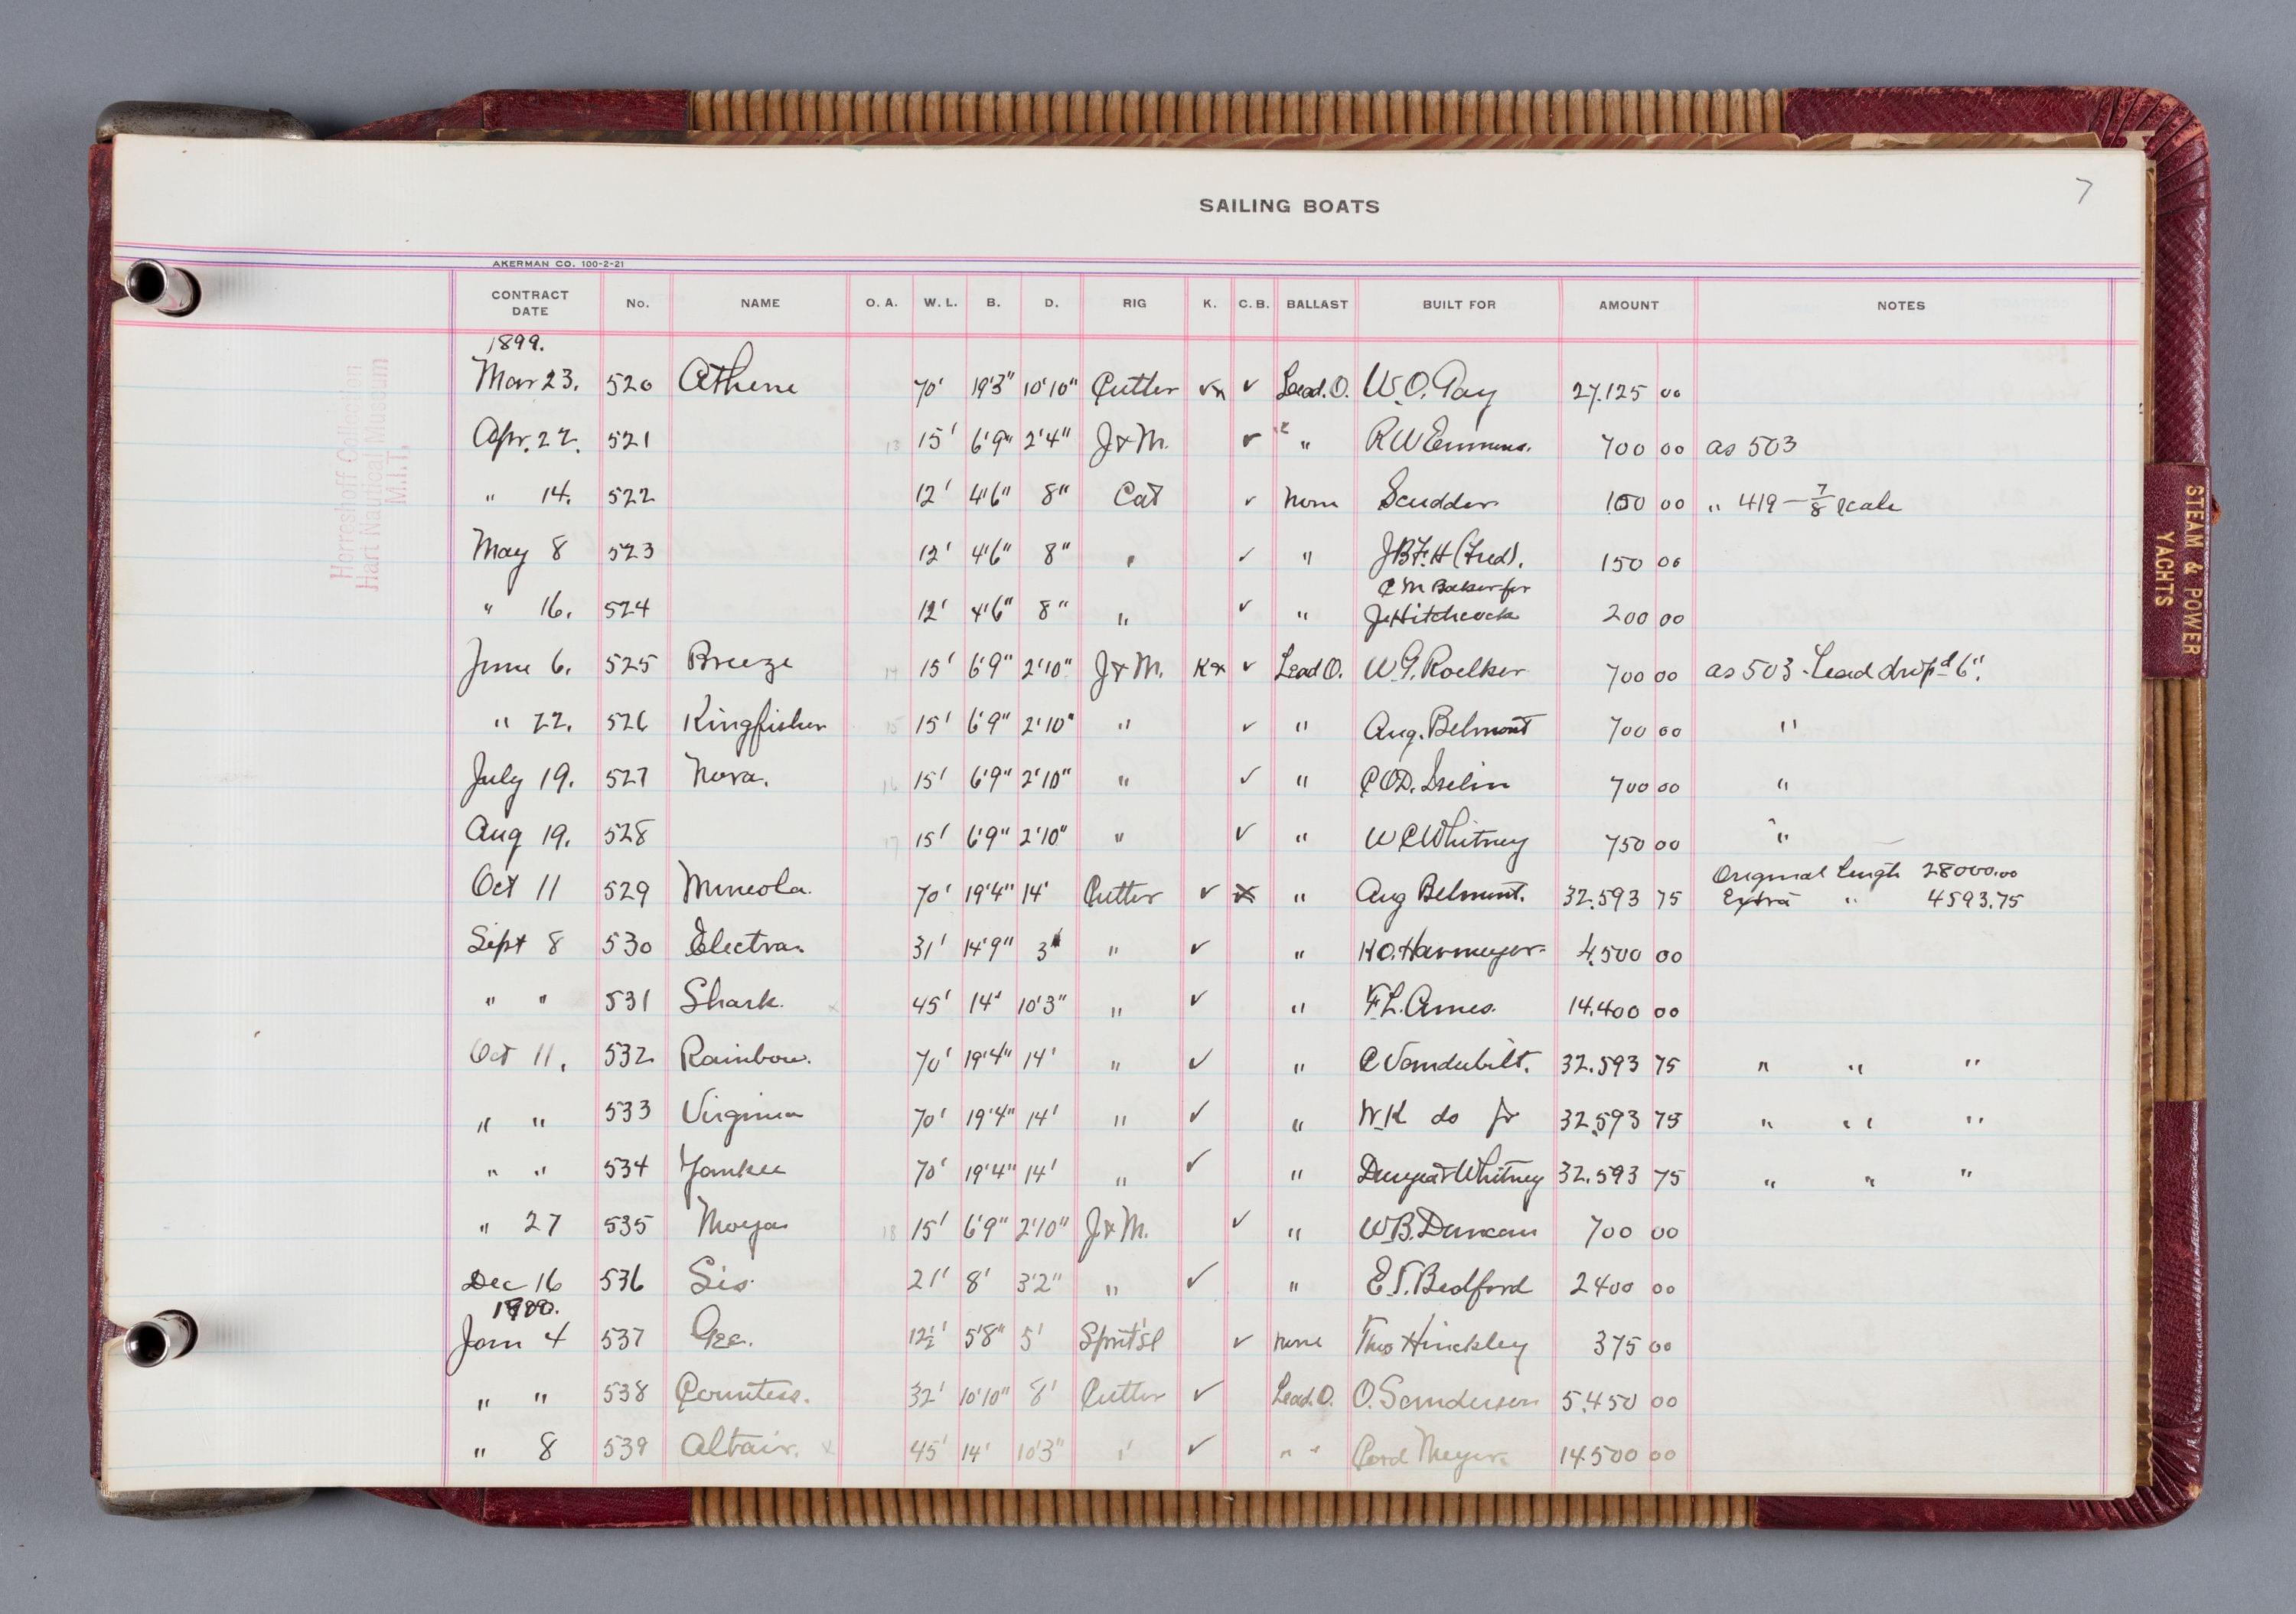 7
SAILING BOATS
AKERMAN CO. 100-2-21
CONTRACT DATE No. NAME O. A. W. L. B. D. RIG K. C. B. BALLAST BUILT FOR AMOUNT NOTES
1899.
Mar 23. 520 Athene 70' 19'3" 10'10" Cutter ✓x ✓ Lead. O. W. O. Gay 27.125 00
Apr. 22. 521 13 15' 6'9" 2'4" J & M. ✓ " R W Emmons. 700 00 as 503
" 14. 522 12' 4'6" 8" Cat ✓ None Scudder 150 00 " 419 - 7/8 scale
May 8 523 12' 4'6" 8" " ✓ " J B F. H (Fred). 150 00
C M Baker for
" 16. 524 12' 4'6" 8" " ✓ " J Hitchcock 200 00
June 6. 525 Breeze 14 15' 6'9" 2'10" J & M. Kx ✓ Lead O. W. G. Roelker 700 00 as 503 - Lead drop'd 6".
" 22. 526 Kingfisher 15 15' 6'9" 2'10" " ✓ " Aug. Belmont 700 00 "
July 19. 527 Nora. 16 15' 6'9" 2'10" " ✓ " C O D. Iselin 700 00 "
Aug 19. 528 17 15' 6'9" 2'10" " ✓ " W C Whitney 750 00 "
Original Length 28000.00
Oct 11 529 Mineola. 70' 19'4" 14' Cutter ✓ " Aug Belmont. 32.593 75 Extra " 4593.75
Sept 8 530 Electra. 31' 14'9" 3' " ✓ " H O. Havmeyer. 4.500 00
" " 531 Shark. x 45' 14' 10'3" " ✓ " F. L. Ames. 14.400 00
Oct 11. 532 Rainbow. 70' 19'4" 14' " ✓ " C Vanderbilt. 32.593 75 " " "
" " 533 Virginia 70' 19'4" 14' " ✓ " W. K do Jr 32.593 75 " " "
" " 534 Yankee 70' 19'4" 14' " ✓ " Duryea & Whitney 32.593 75 " " "
" 27 535 Moya 18 15' 6'9" 2'10" J & M. ✓ " W. B. Duncan 700 00
Dec 16 536 Sis. 21' 8' 3'2" " ✓ " E. T. Bedford 2400 00
1900.
Jan 4 537 Gee. 12½' 5'8" 5' Sprit'sl ✓ none Thos Hinckley 375 00
" " 538 Countess. 32' 10'10" 8' Cutter ✓ Lead. O. O. Sanderson 5.450 00
" 8 539 Altair. x 45' 14' 10'3" " ✓ " " Cord Meyer. 14.500 00
Herreshoff Collection
Hart Nautical Museum
M.I.T.
STEAM & POWER
YACHTS